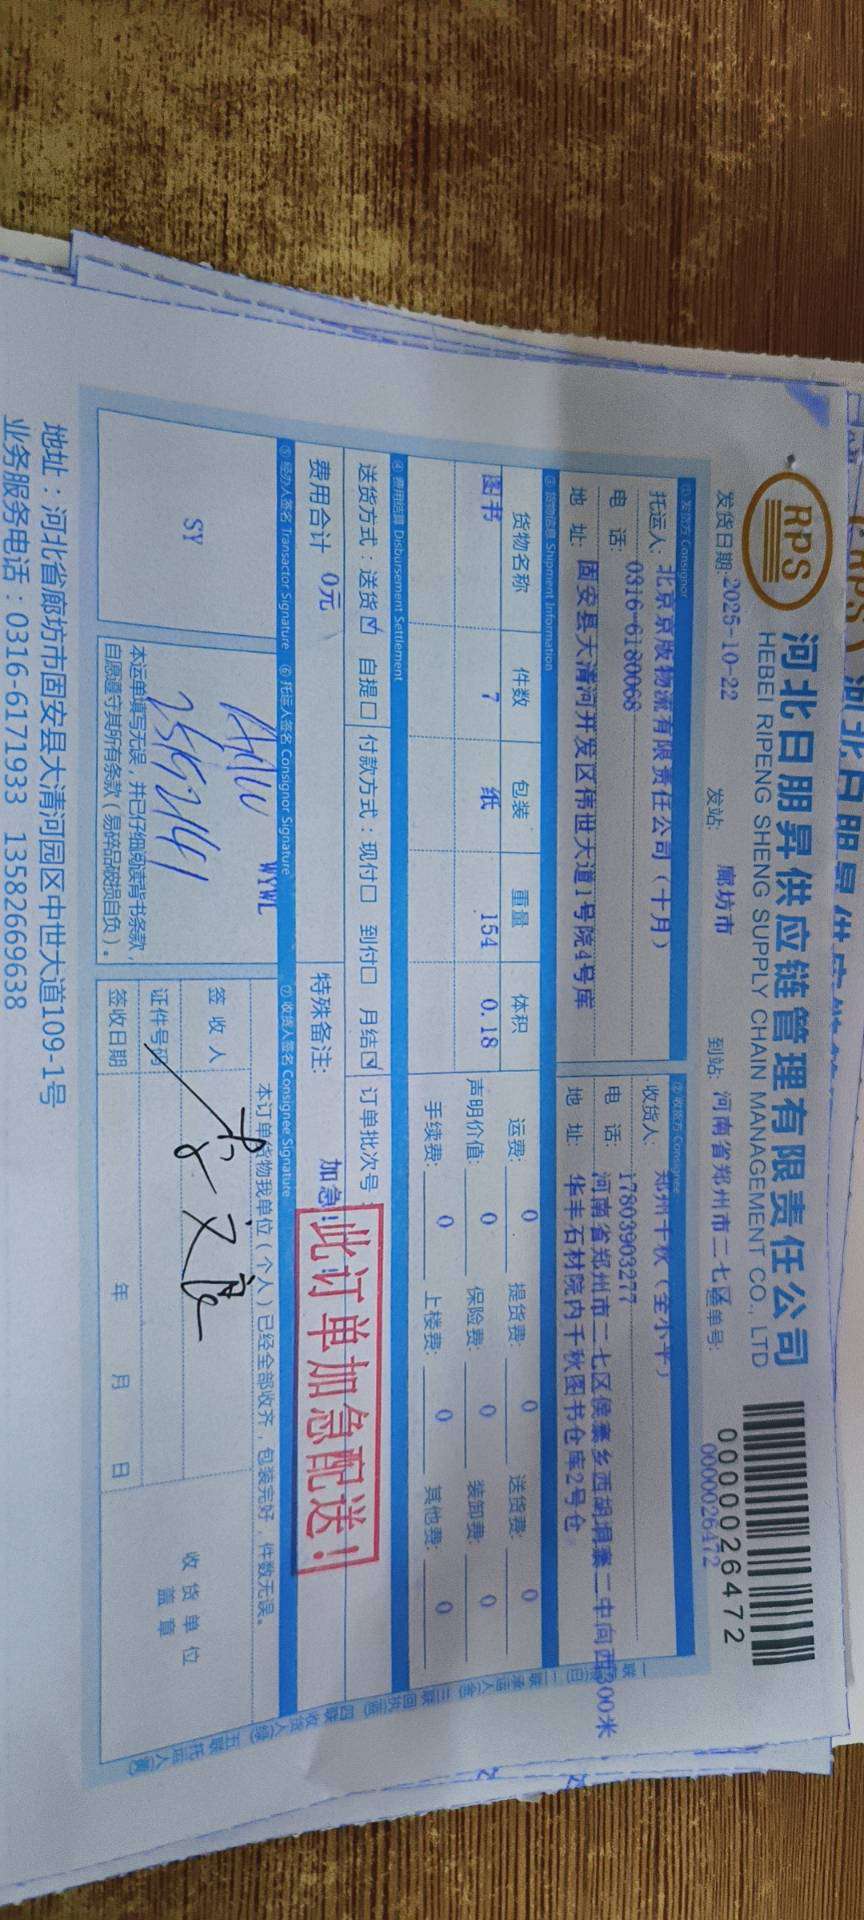 RPS
河北日朋昇供应链管理有限责任公司
HEBEI RIPENG SHENG SUPPLY CHAIN MANAGEMENT CO., LTD
0000026472
发货日期:2025-10-22 发站: 廊坊市 到站: 河南省郑州市二七区 运单号: 0000026472
①发货方 Consignor ②收货方 Consignee
托运人: 北京京版物流有限责任公司(十月) 收货人: 郑州千秋(全小平)
电 话: 0316-6180068 电 话: 17803903277
地 址: 固安县大清河开发区伟世大道1号院4号库 地 址: 河南省郑州市二七区侯寨乡西胡垌寨二中向西300米
华丰石材院内千秋图书仓库2号仓
③货物信息 Shipment Information
货物名称 件数 包装 重量 体积 运费: 0 提货费: 0 送货费: 0
图书 7 纸 154 0.18 声明价值: 0 保险费: 0 装卸费: 0
手续费: 0 上楼费: 0 其他费: 0
④费用结算 Disbursement Settlement
送货方式:送货☑ 自提□ 付款方式:现付□ 到付□ 月结☑ 订单批次号
费用合计 0元 特殊备注: 加急!
此订单加急配送!
⑤经办人签名 Transactor Signature ⑥托运人签名 Consignor Signature ⑦收货人签名 Consignee Signature
SY
WYWL
本运单填写无误,并已仔细阅读背书条款,
自愿遵守其所有条款(易碎品破损自负)。
本订单货物我单位(个人)已经全部收齐,包装完好,件数无误。
签收人
证件号码
签收日期 年 月 日
收货单位
盖章
地址:河北省廊坊市固安县大清河园区中世大道109-1号
业务服务电话:0316-6171933 13582669638